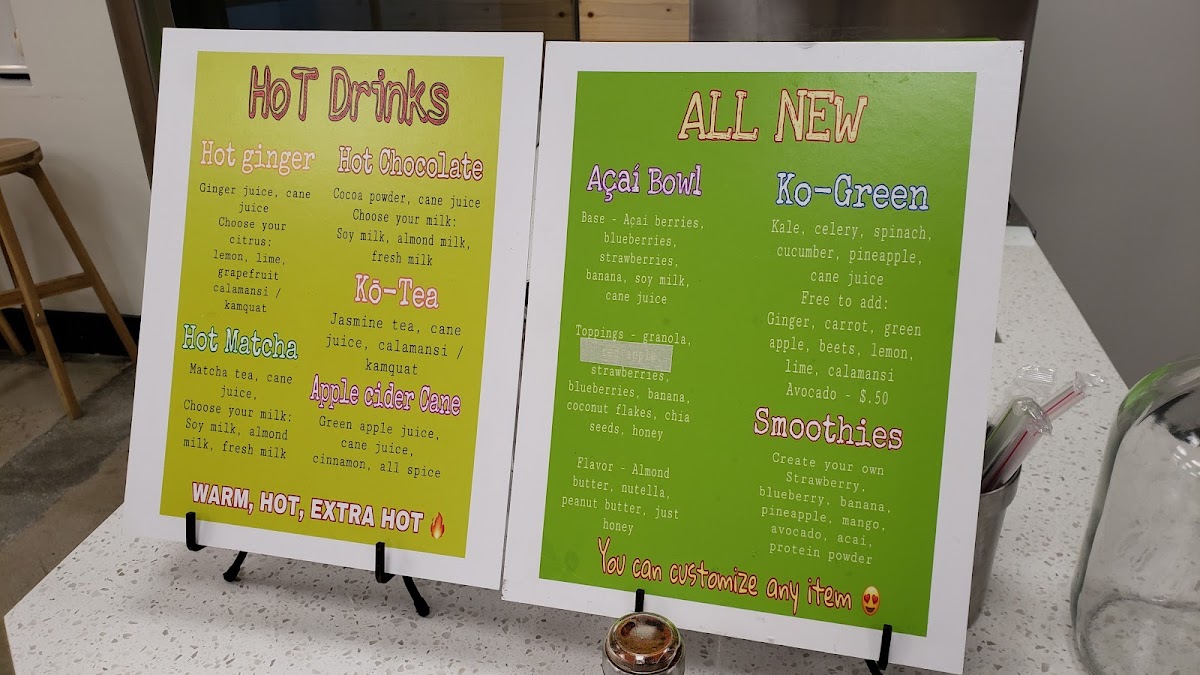 HoT Drinks
Hot ginger
Ginger juice, cane
juice
Choose your
citrus:
lemon, lime,
grapefruit
calamansi /
kumquat
Hot Matcha
Matcha tea, cane
juice,
Choose your milk:
Soy milk, almond
milk, fresh milk
Hot Chocolate
Cocoa powder, cane juice
Choose your milk:
Soy milk, almond milk,
fresh milk
Kō-Tea
Jasmine tea, cane
juice, calamansi /
kamquat
Apple cider Cane
Green apple juice,
cane juice,
cinnamon, all spice
WARM, HOT, EXTRA HOT 🔥
ALL NEW
Açaí Bowl
Base - Açai berries,
blueberries,
strawberries,
banana, soy milk,
cane juice
Toppings - granola,
red apple,
strawberries,
blueberries, banana,
coconut flakes, chia
seeds, honey
Flavor - Almond
butter, nutella,
peanut butter, just
honey
Ko-Green
Kale, celery, spinach,
cucumber, pineapple,
cane juice
Free to add:
Ginger, carrot, green
apple, beets, lemon,
lime, calamansi
Avocado - $.50
Smoothies
Create your own
Strawberry,
blueberry, banana,
pineapple, mango,
avocado, acai,
protein powder
You can customize any item 😍